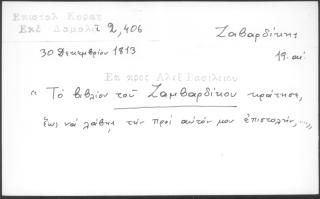 Επιστολ Κοραη
Εκδ Δαμαλᾶ 2,406
Ζαβαρδίκης
30 Δεκεμβρίου 1813
19. αἰ.
Επ προς Αλεξ Βασιλειου
« Τό βιβλίον τοῦ Ζαμβαρδίκου κράτησε,
ἕως νά λάβῃς τήν πρός αὐτόν μου ἐπιστολήν, ...,,